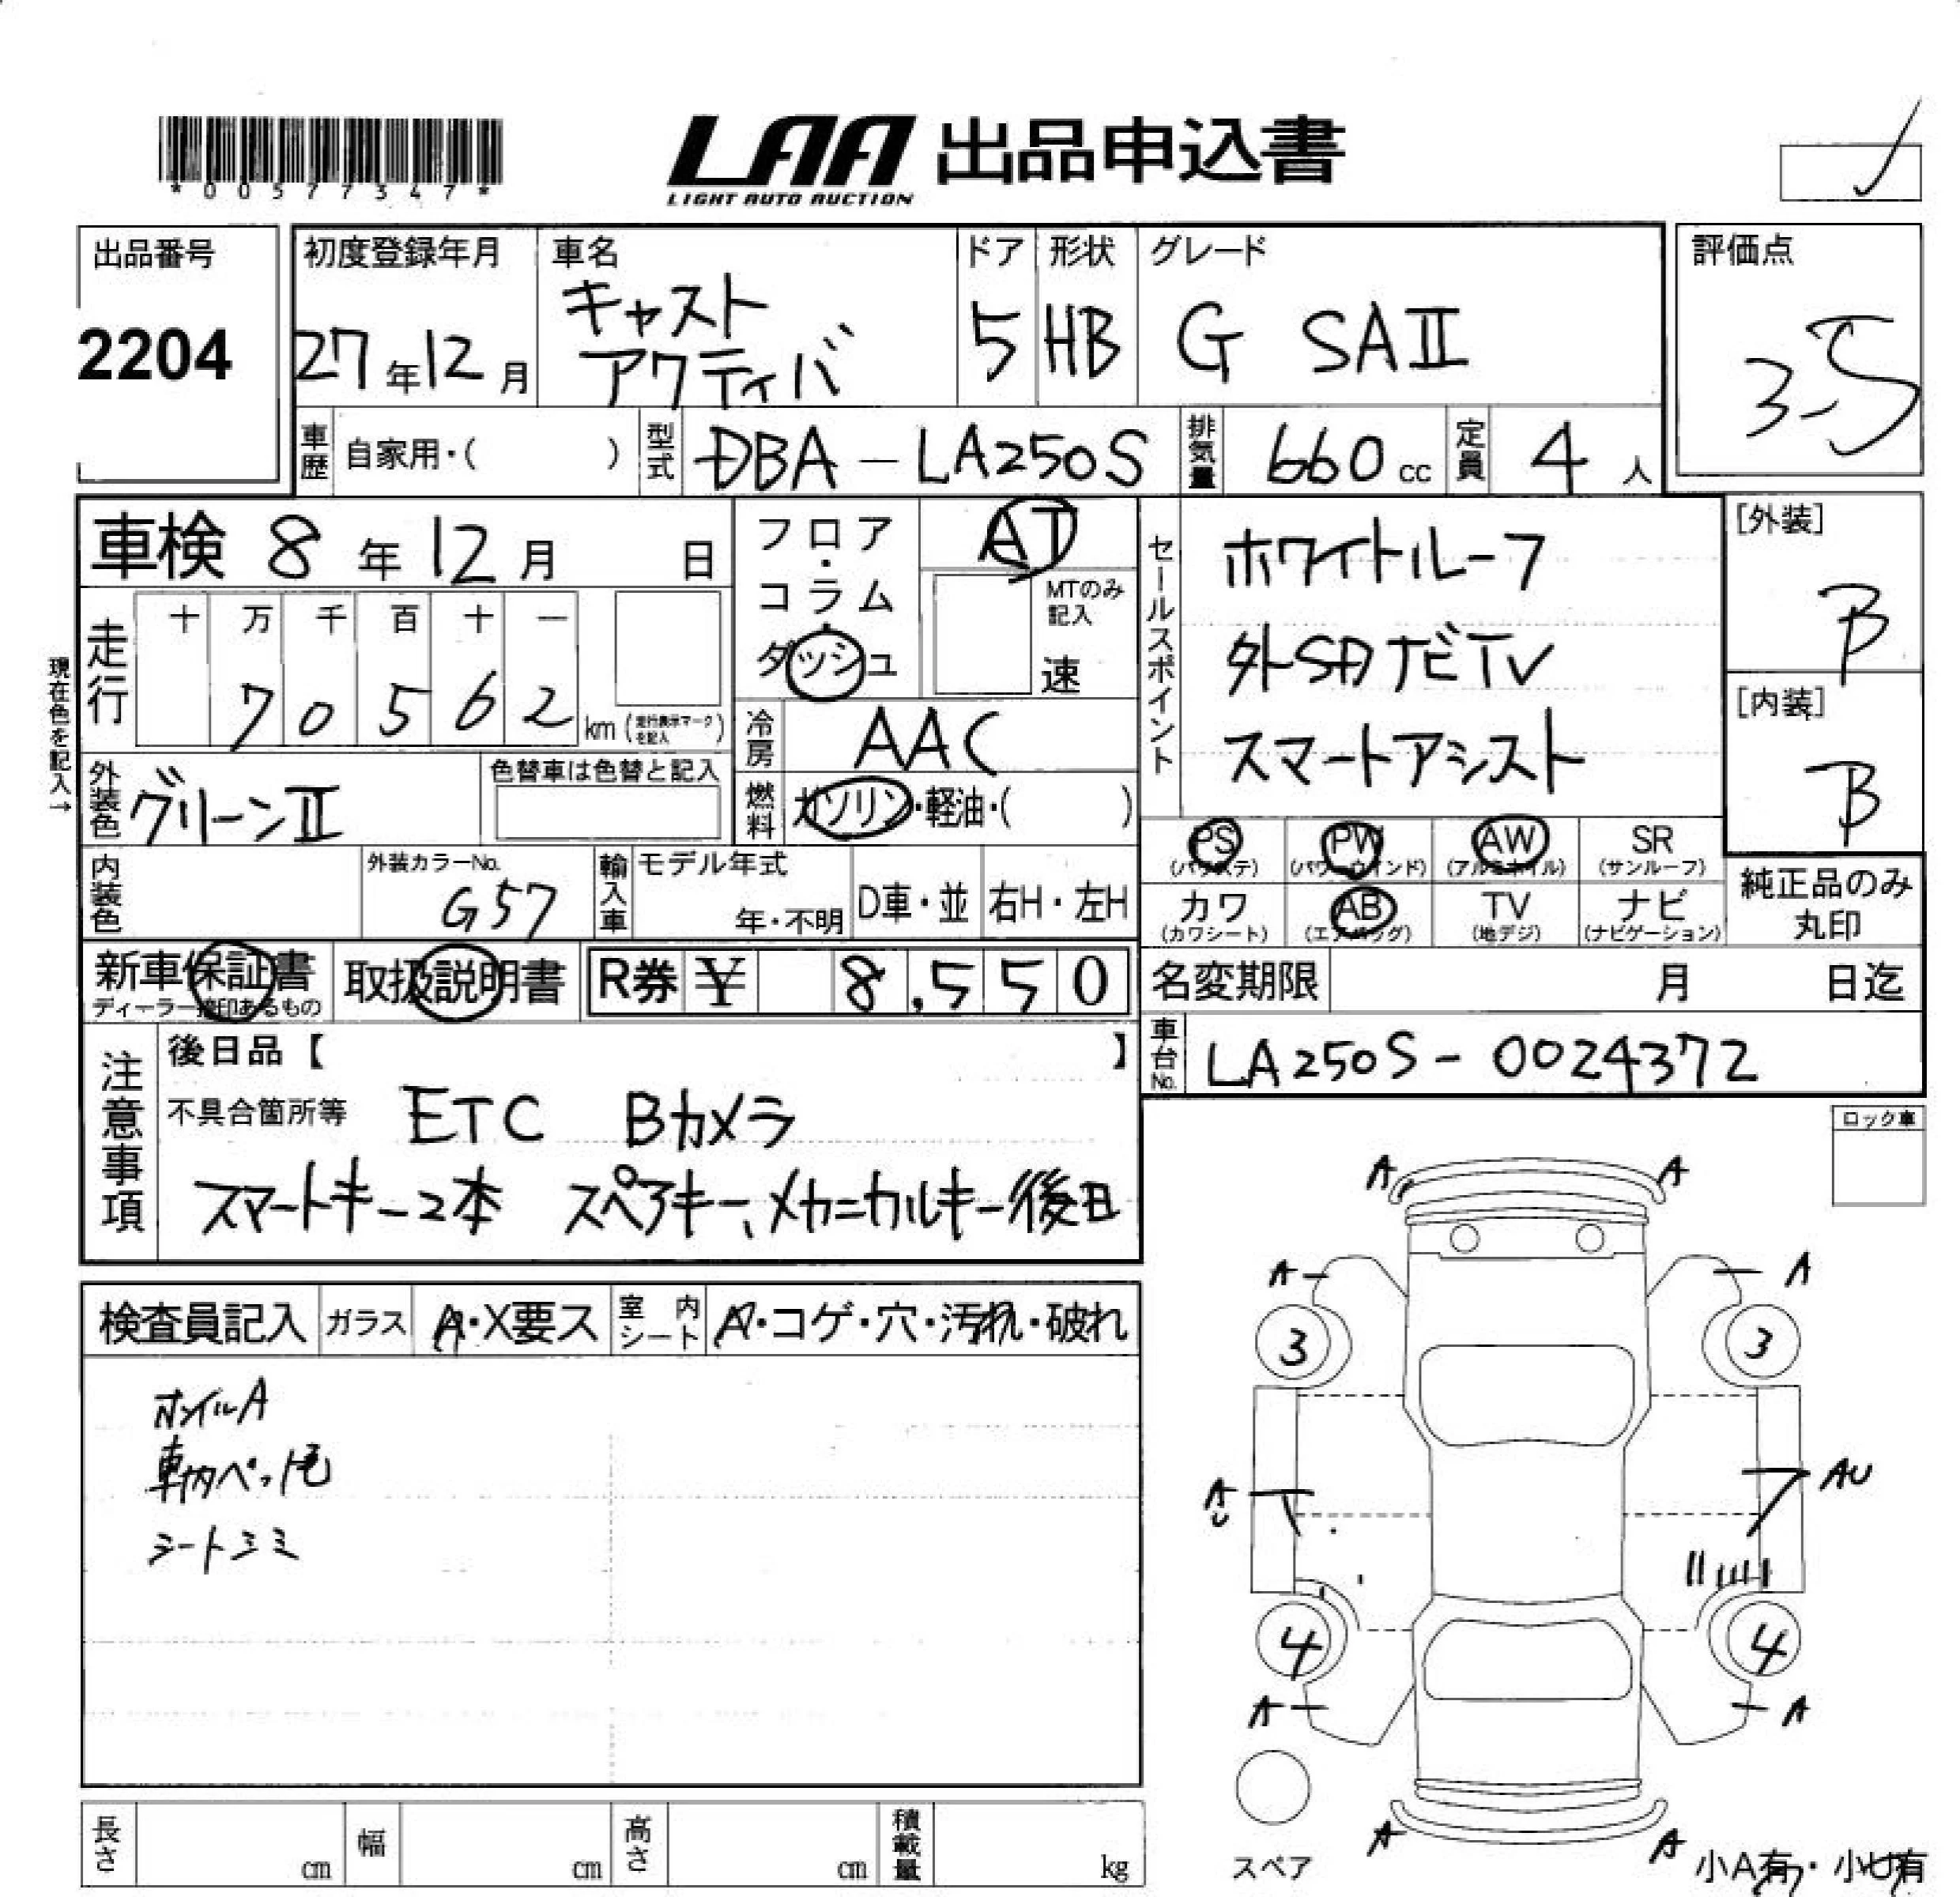 *00577347*
LAA 出品申込書
LIGHT AUTO AUCTION
出品番号
2204
初度登録年月
27年12月
車名
キャスト
アクティバ
ドア
5
形状
HB
グレード
G SAⅡ
評価点
3.5
車歴 自家用・( )
型式 DBA-LA250S
排気量 660cc
定員 4人
車検 8年12月 日
走行
十 万 千 百 十 一
7 0 5 6 2 km (走行表示マークを記入)
現在色を記入→
外装色 グリーンⅡ
色替車は色替と記入
フロア・コラム・ダッシュ
AT
MTのみ記入
速
冷房 AAC
燃料 ガソリン・軽油・( )
セールスポイント
ホワイトルーフ
外SDナビTV
スマートアシスト
[外装]
B
[内装]
B
内装色
外装カラーNo.
G57
輸入車 モデル年式
年・不明 D車・並 右H・左H
PS AW PW SR
(パワステ) (パワーウインド) (アルミホイル) (サンルーフ)
カワ AB TV ナビ
(カワシート) (エアバッグ) (地デジ) (ナビゲーション)
純正品のみ
丸印
新車保証書
ディーラー捺印あるもの
取扱説明書
R券 ¥ 8,550
名変期限 月 日迄
車台No. LA250S-0024372
注意事項
後日品【 】
不具合箇所等 ETC Bカメラ
スマートキー2本 スペアキー、メカニカルキー後日
ロック車
検査員記入 ガラス A・X要ス 室内シート A・コゲ・穴・汚れ・破れ
ホイルA
車内ペット毛
シートシミ
A A
A A
3 3
AU AU
4 4
A A
スペア
A A
小A有・小U有
長さ cm 幅 cm 高さ cm 積載量 kg